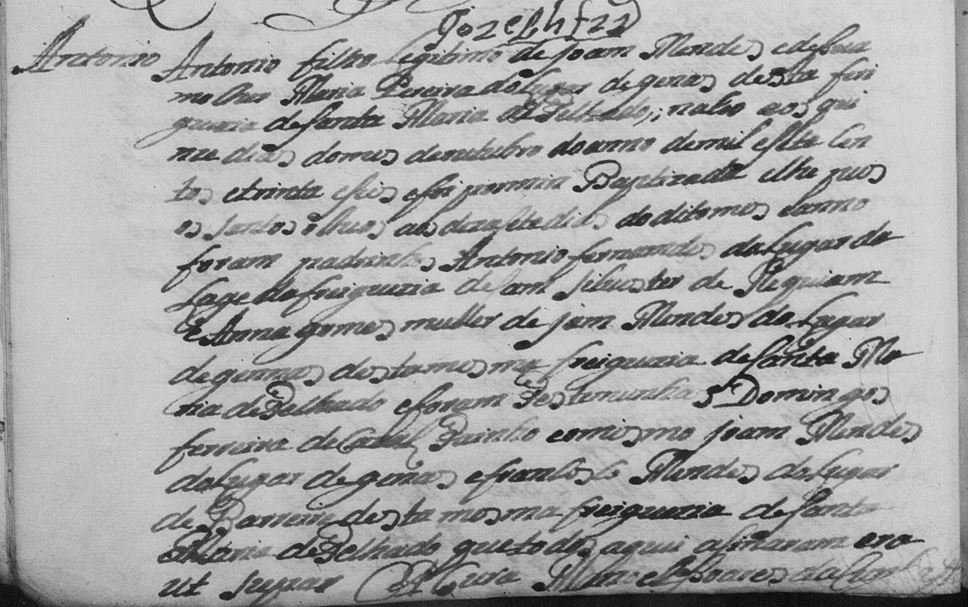 Jozeph frz
Antonio Antonio filho legitimo de joam Mendes e de sua
molher Maria Pereira do lugar de genas desta fri
guezia de santa Maria de Telhado, naseo aos qui
nze dias do mes de outubro do anno de mil e sete cen
tos e trinta e seis e foi por min Baptizado e lhe pus
os santos olhos aos dazasete dias do dito mes e anno
foram padrinhos Antonio fernandes do lugar da
Lage da freiguezia de sam siluester de Requiam
E Anna gomes mulher de joam Mendes do lugar
de gennas desta mesma freiguezia de santa Ma
ria de Telhado e foram Testamunhas Domingos
ferreira de Cazal e o mismo joam Mendes
do lugar de genas e francisco Mendes do lugar
de Barreiro desta mesma freiguezia de santa
Maria de Telhado que todos aqui asinaram era
ut supar O Cura Manoel soares da